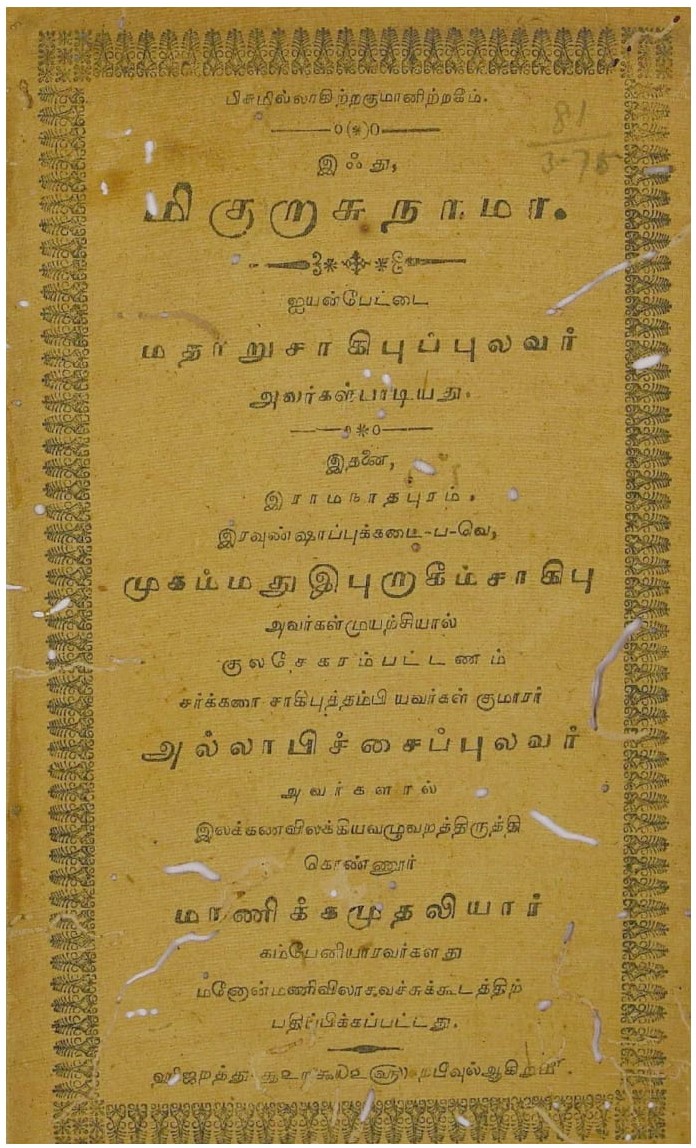 பிசுமில்லாகிற்றகுமானிற்றகீம்.
இஃது,
மிகுறாசுநாமா.
ஐயன்பேட்டை
மதாறுசாகிபுப்புலவர்
அவர்கள்பாடியது.
இதனை,
இராமநாதபுரம்.
இரவுண்ஷாப்புக்கடை-ப-வெ,
முகம்மதுஇபுறாகீம்சாகிபு
அவர்கள்முயற்சியால்
குலசேகரம்பட்டணம்
சர்க்கரை சாகிபுத்தம்பி யவர்கள் குமாரர்
அல்லாபிச்சைப்புலவர்
அவர்களால்
இலக்கணவிலக்கியவழுவறத்திருத்தி
கொண்ணூர்
மாணிக்கமுதலியார்
கம்பேனியாரவர்களது
மனோன்மணிவிலாசவச்சுக்கூடத்திற்
பதிப்பிக்கப்பட்டது.
ஹிஜறத்து றபீவுல்ஆகிறம்.
81
3-75